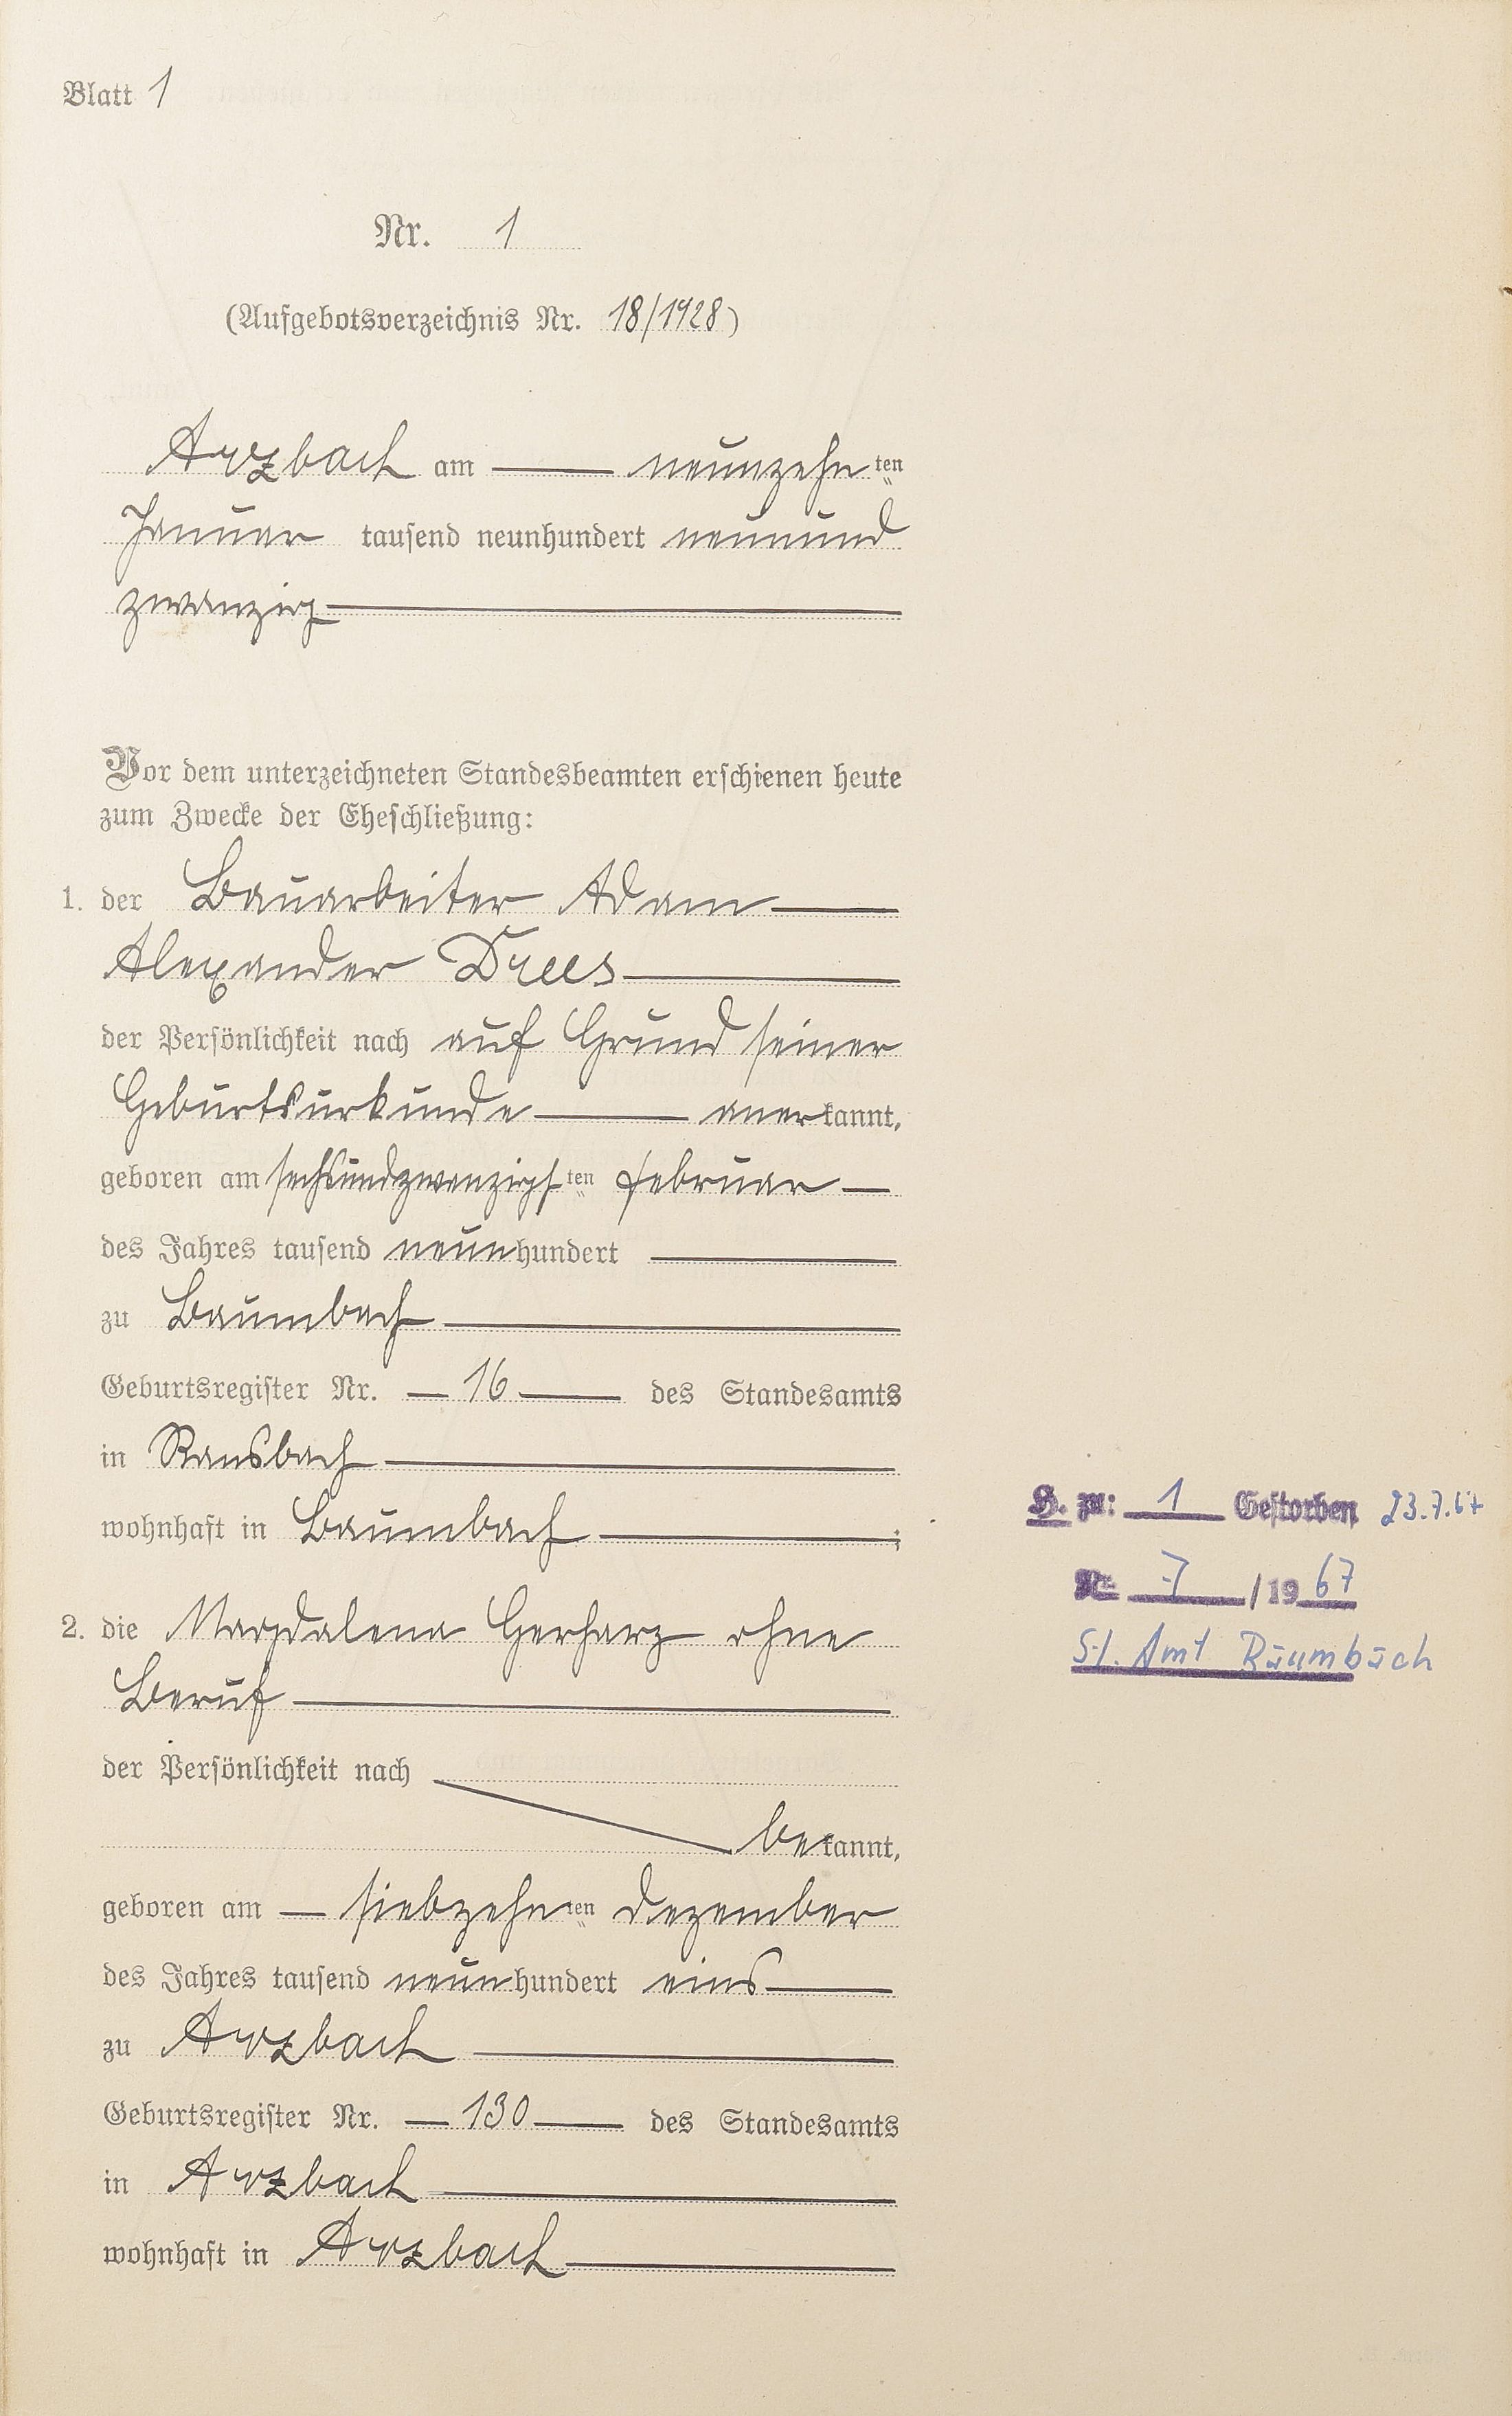 Blatt 1
Nr. 1
(Aufgebotsverzeichnis Nr. 18/1928)
Arzbach am neunzehnten
Januar tausend neunhundert neunund
zwanzig
Vor dem unterzeichneten Standesbeamten erschienen heute
zum Zwecke der Eheschließung:
1. der Bauarbeiter Adam
Alexander Drees
der Persönlichkeit nach auf Grund seiner
Geburtsurkunde anerkannt,
geboren am sechsundzwanzigsten Februar
des Jahres tausend neunhundert
zu Baumbach
Geburtsregister Nr. 16 des Standesamts
in Ransbach
wohnhaft in Baumbach;
2. die Magdalena Gerharz ohne
Beruf
der Persönlichkeit nach
bekannt,
geboren am siebzehnten Dezember
des Jahres tausend neunhundert eins
zu Arzbach
Geburtsregister Nr. 130 des Standesamts
in Arzbach
wohnhaft in Arzbach
H. zu: 1 Gestorben 23.7.67
Nr. 7/1967
St. Amt Baumbach